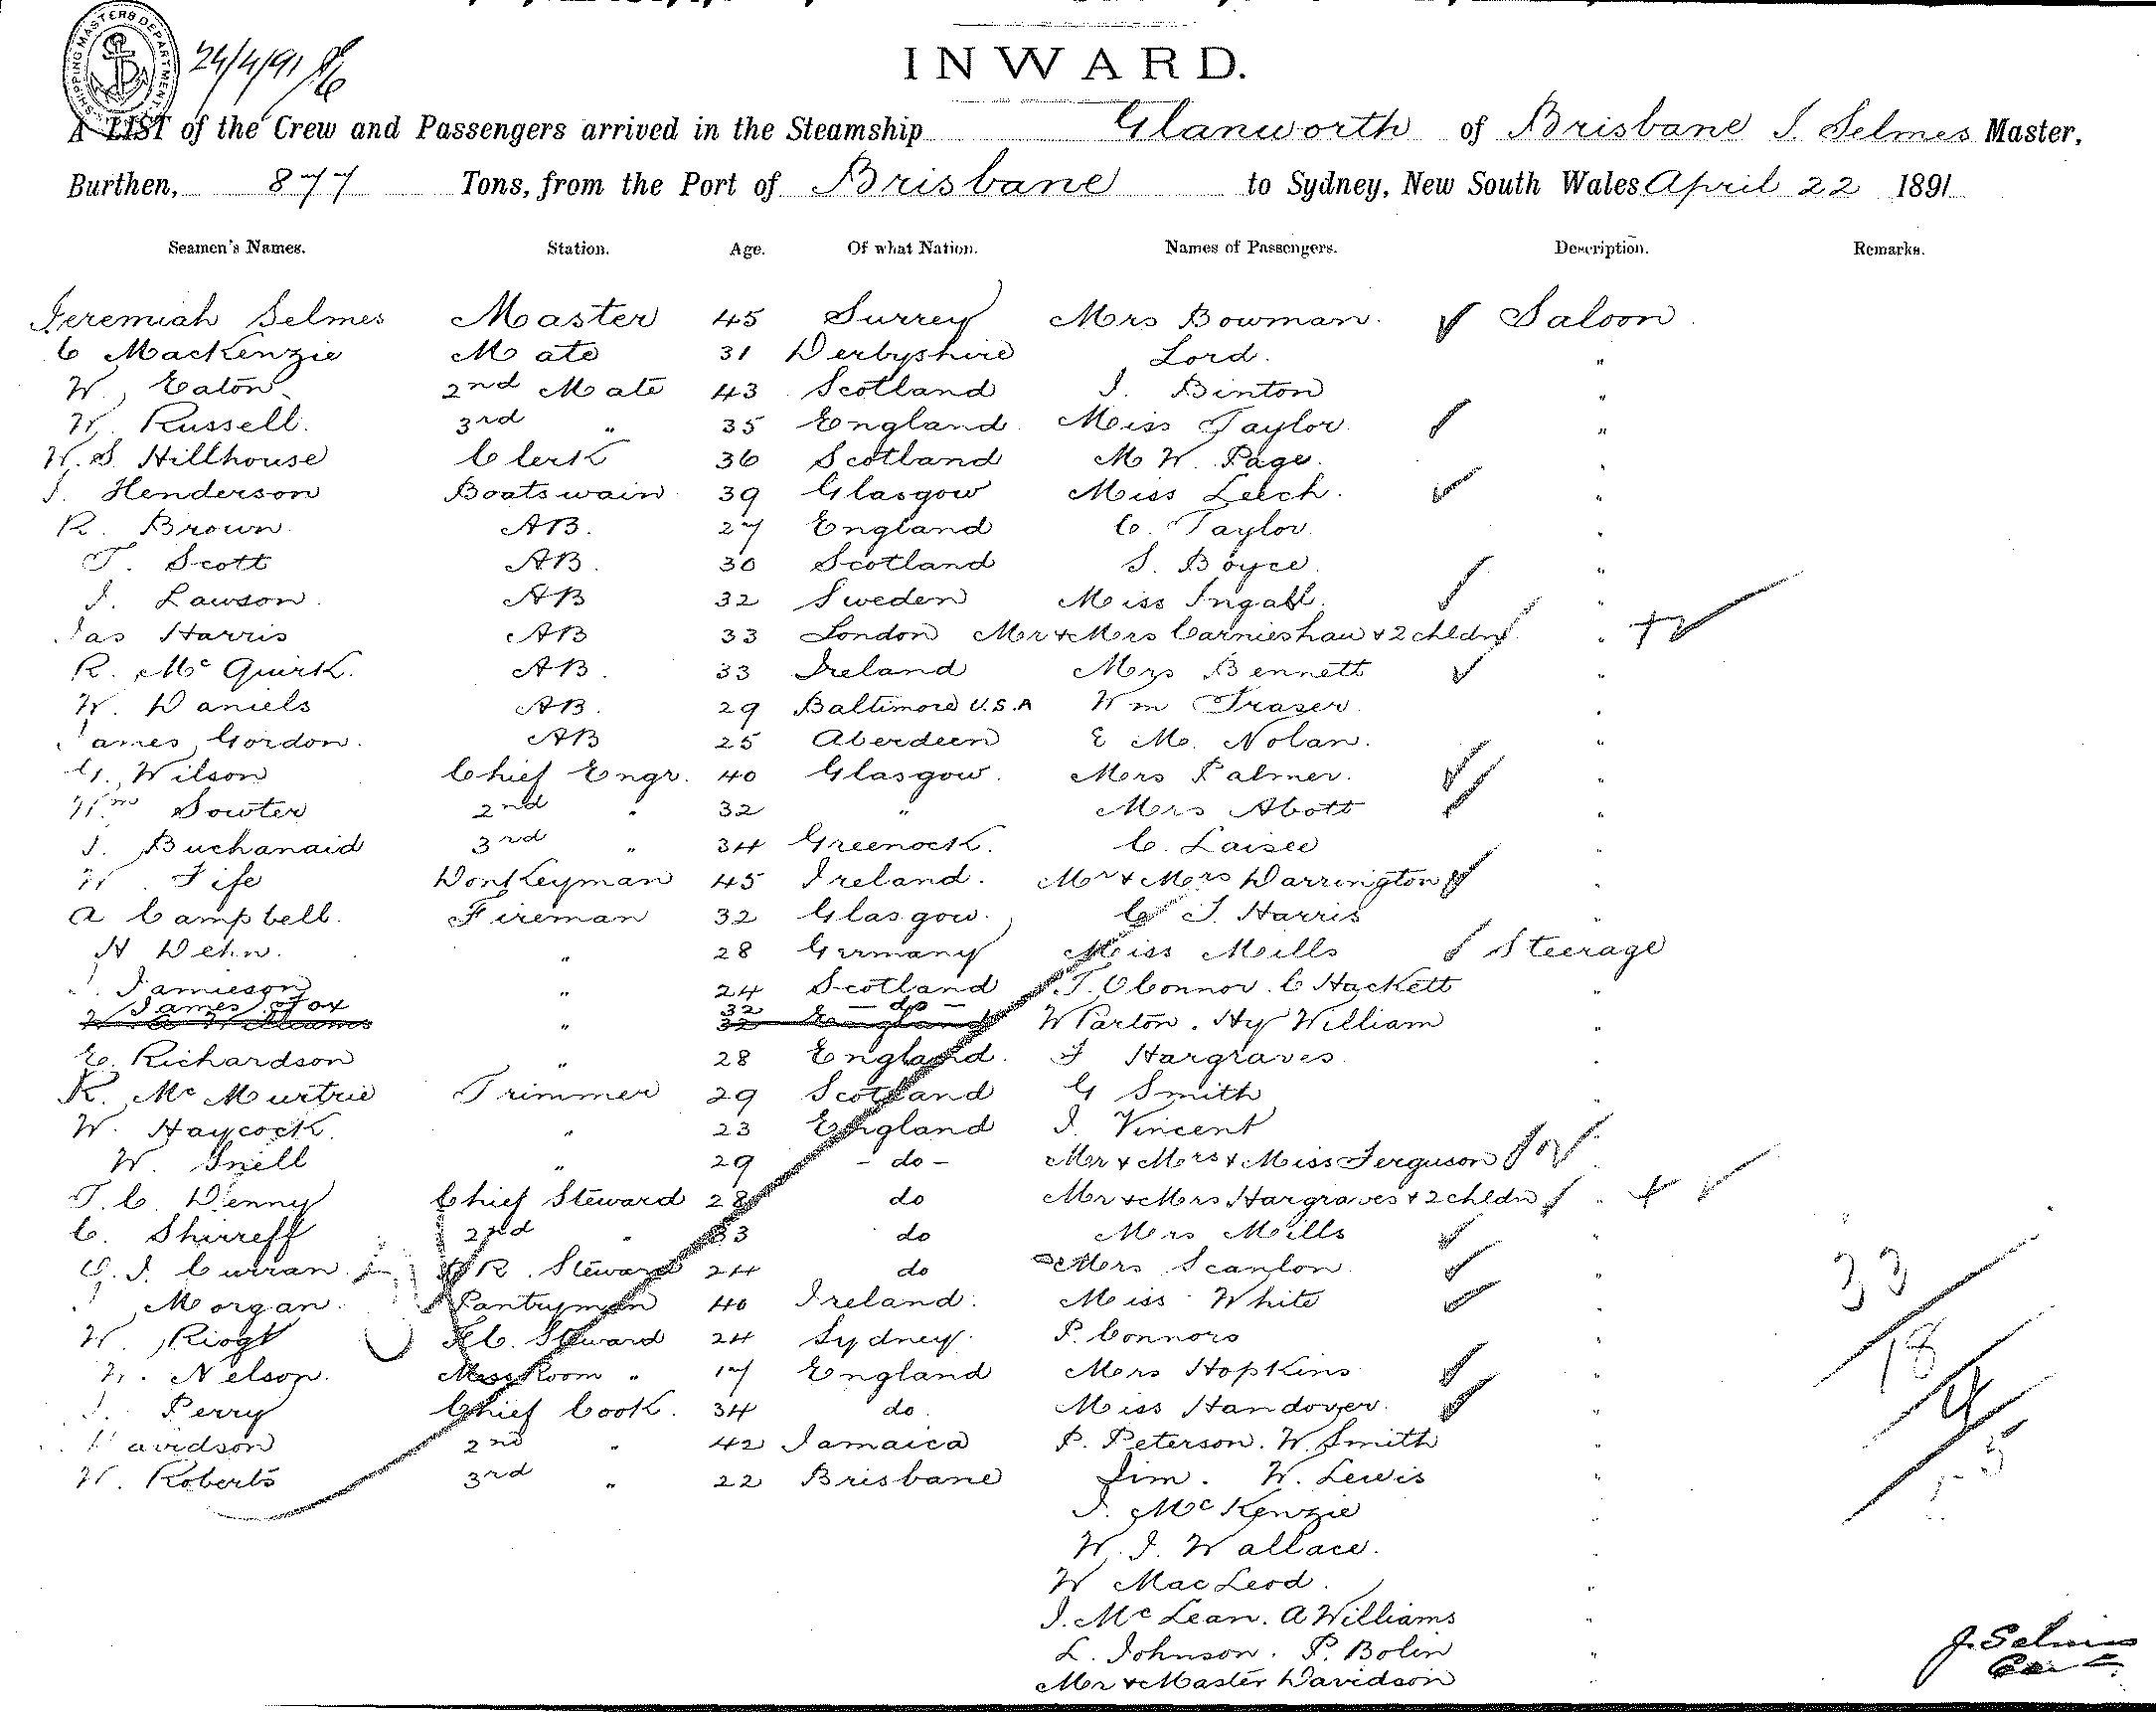 SHIPPING MASTERS DEPARTMENT
24/4/91
INWARD.
A LIST of the Crew and Passengers arrived in the Steamship Glanworth of Brisbane J. Selmes Master,
Burthen, 877 Tons, from the Port of Brisbane to Sydney, New South Wales April 22 1891
Seamen's Names. Station. Age. Of what Nation. Names of Passengers. Description. Remarks.
Jeremiah Selmes Master 45 Surrey Mrs Bowman. Saloon
C MacKenzie Mate 31 Derbyshire Lord. "
W. Eaton 2nd Mate 43 Scotland J. Binton "
W. Russell. 3rd " 35 England Miss Taylor "
W. S. Hillhouse Clerk 36 Scotland M W. Page. "
J. Henderson Boatswain 39 Glasgow Miss Leech. "
R. Brown. AB. 27 England C. Taylor "
T. Scott AB. 30 Scotland S. Boyce. "
J. Lawson. AB 32 Sweden Miss Ingall. "
Jas Harris AB 33 London Mr & Mrs Carnieshaw & 2 chldn "
R. McQuirk. AB. 33 Ireland Mrs Bennett "
W. Daniels AB. 29 Baltimore U.S.A Wm Fraser. "
James Gordon. AB 25 Aberdeen E M. Nolan. "
G. Wilson Chief Engr. 40 Glasgow. Mrs Palmer. "
Wm Sowter 2nd " 32 " Mrs Abott "
J. Buchanaid 3rd " 34 Greenock. C. Laisee "
W. Fife Donkeyman 45 Ireland. Mr & Mrs Darrington "
A Campbell. Fireman 32 Glasgow. C J. Harris "
H Dehn. " 28 Germany Miss Mills Steerage
J. Jamieson " 24 Scotland T. OConnor. C Hackett "
James Fox 32 - do -
Williams " 32 England W Parton. Hy William "
E. Richardson " 28 England. F Hargraves "
R. McMurtrie Trimmer 29 Scotland G Smith "
W. Haycock. " 23 England J. Vincent "
W. Snell " 29 - do - Mr & Mrs & Miss Ferguson "
T. C. Denny Chief Steward 28 do Mr & Mrs Hargraves & 2 chldn "
C. Shirreff 2nd " 33 do Mrs Mills "
G. J. Curran. R. Steward 24 do Mrs Scanlon. "
J Morgan. Pantryman 40 Ireland. Miss White "
W. Steward 24 Sydney. P. Connors "
W. Nelson. Mess Room " 17 England Mrs Hopkins "
J. Perry Chief Cook. 34 do. Miss Handover. "
Davidson 2nd " 42 Jamaica P. Peterson. W. Smith "
W. Roberts 3rd " 22 Brisbane Jim. W. Lewis "
J. McKenzie "
W. J. Wallace. "
W MacLeod. "
J. McLean. A Williams "
L. Johnson. P. Bolin "
Mr & Master Davidson
33
18
4
J. Selmes